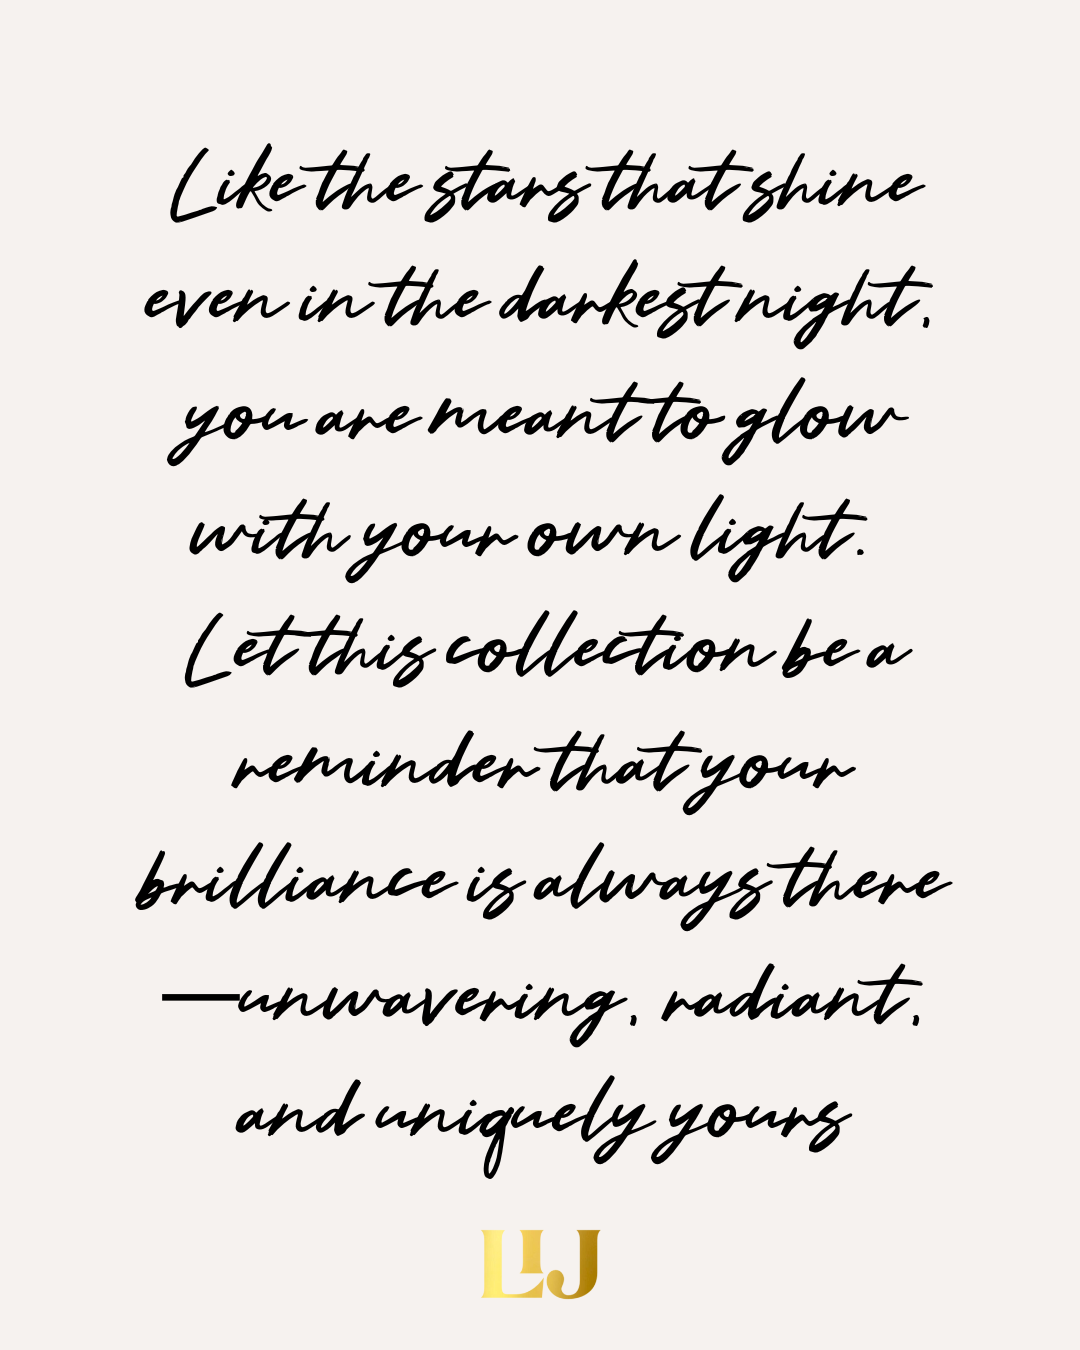 Like the stars that shine
even in the darkest night,
you are meant to glow
with your own light.
Let this collection be a
reminder that your
brilliance is always there
—unwavering, radiant,
and uniquely yours
LIJ